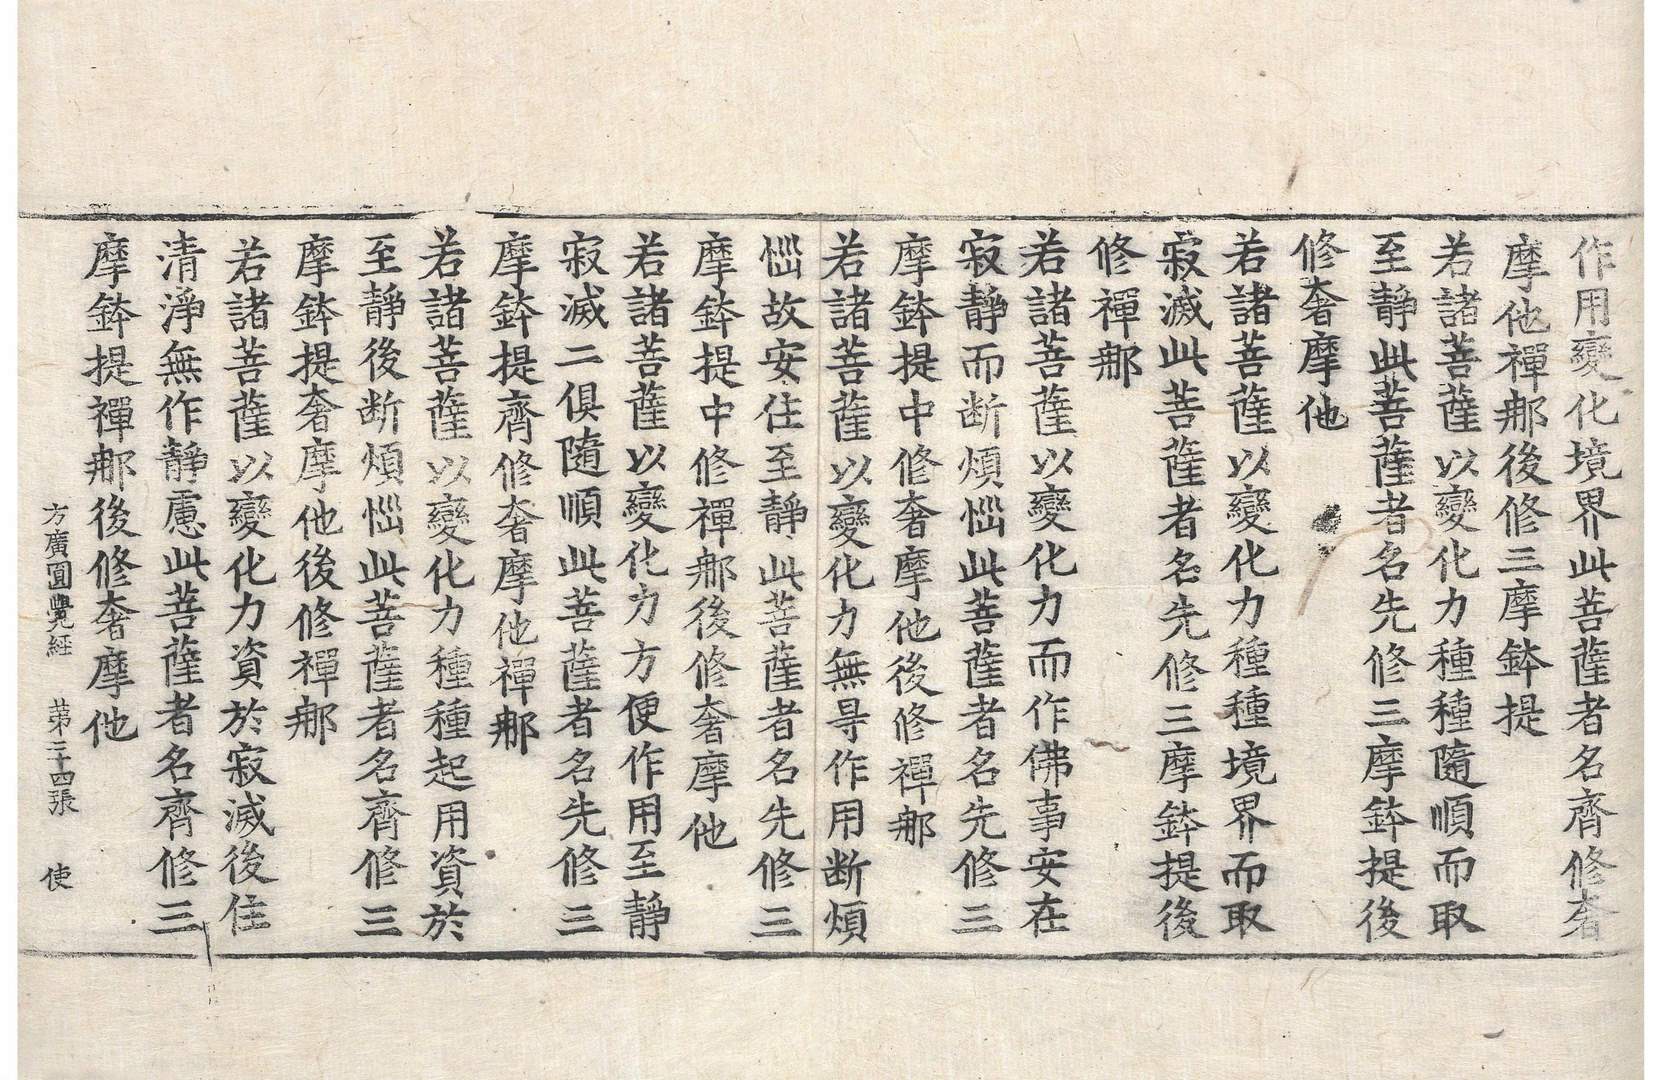 作用變化境界此菩薩者名齊修奢
摩他禪那後修三摩鉢提
若諸菩薩以變化力種種隨順而取
至靜此菩薩者名先修三摩鉢提後
修奢摩他
若諸菩薩以變化力種種境界而取
寂滅此菩薩者名先修三摩鉢提後
修禪那
若諸菩薩以變化力而作佛事安在
寂靜而断煩惱此菩薩者名先修三
摩鉢提中修奢摩他後修禪那
若諸菩薩以變化力無㝵作用断煩
惱故安住至靜此菩薩者名先修三
摩鉢提中修禪那後修奢摩他
若諸菩薩以變化力方便作用至靜
寂滅二俱隨順此菩薩者名先修三
摩鉢提齊修奢摩他禪那
若諸菩薩以變化力種種起用資於
至靜後断煩惱此菩薩者名齊修三
摩鉢提奢摩他後修禪那
若諸菩薩以變化力資於寂滅後住
清淨無作靜慮此菩薩者名齊修三
摩鉢提禪那後修奢摩他
方廣圓覺經 第三十四張 使